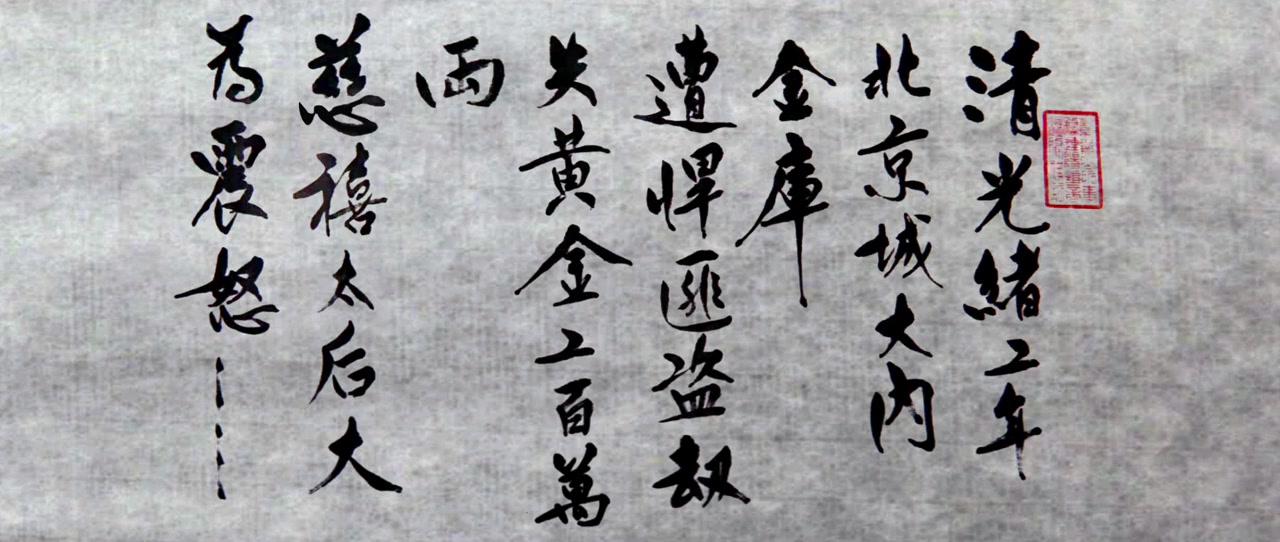 清光緒二年
北京城大内
金庫
遭悍匪盗刼
失黄金二百萬
兩
慈禧太后大
為震怒……